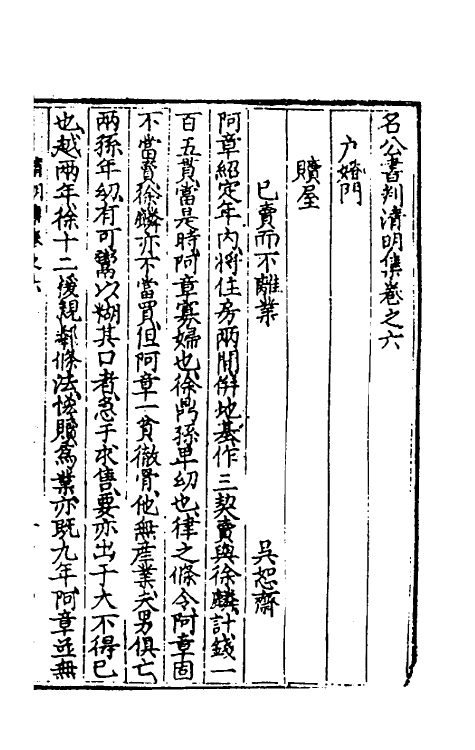 名公書判清明集卷之六
户婚門
贖屋
已賣而不離業 吳恕齋
阿章紹定年內將住房兩間併地基作三契賣與徐麟計錢一
百五貫當是時阿章寡婦也徐鼎孫卑幼也律之條令阿章固
不當賣徐麟亦不當買但阿章一貧徹骨他無産業夫男俱亡
兩孫年幼有可鬻以糊其口者急于求售要亦出于大不得已
也越兩年徐十二援親鄰條法㤼贖爲業亦既九年阿章並無
清明集卷之六